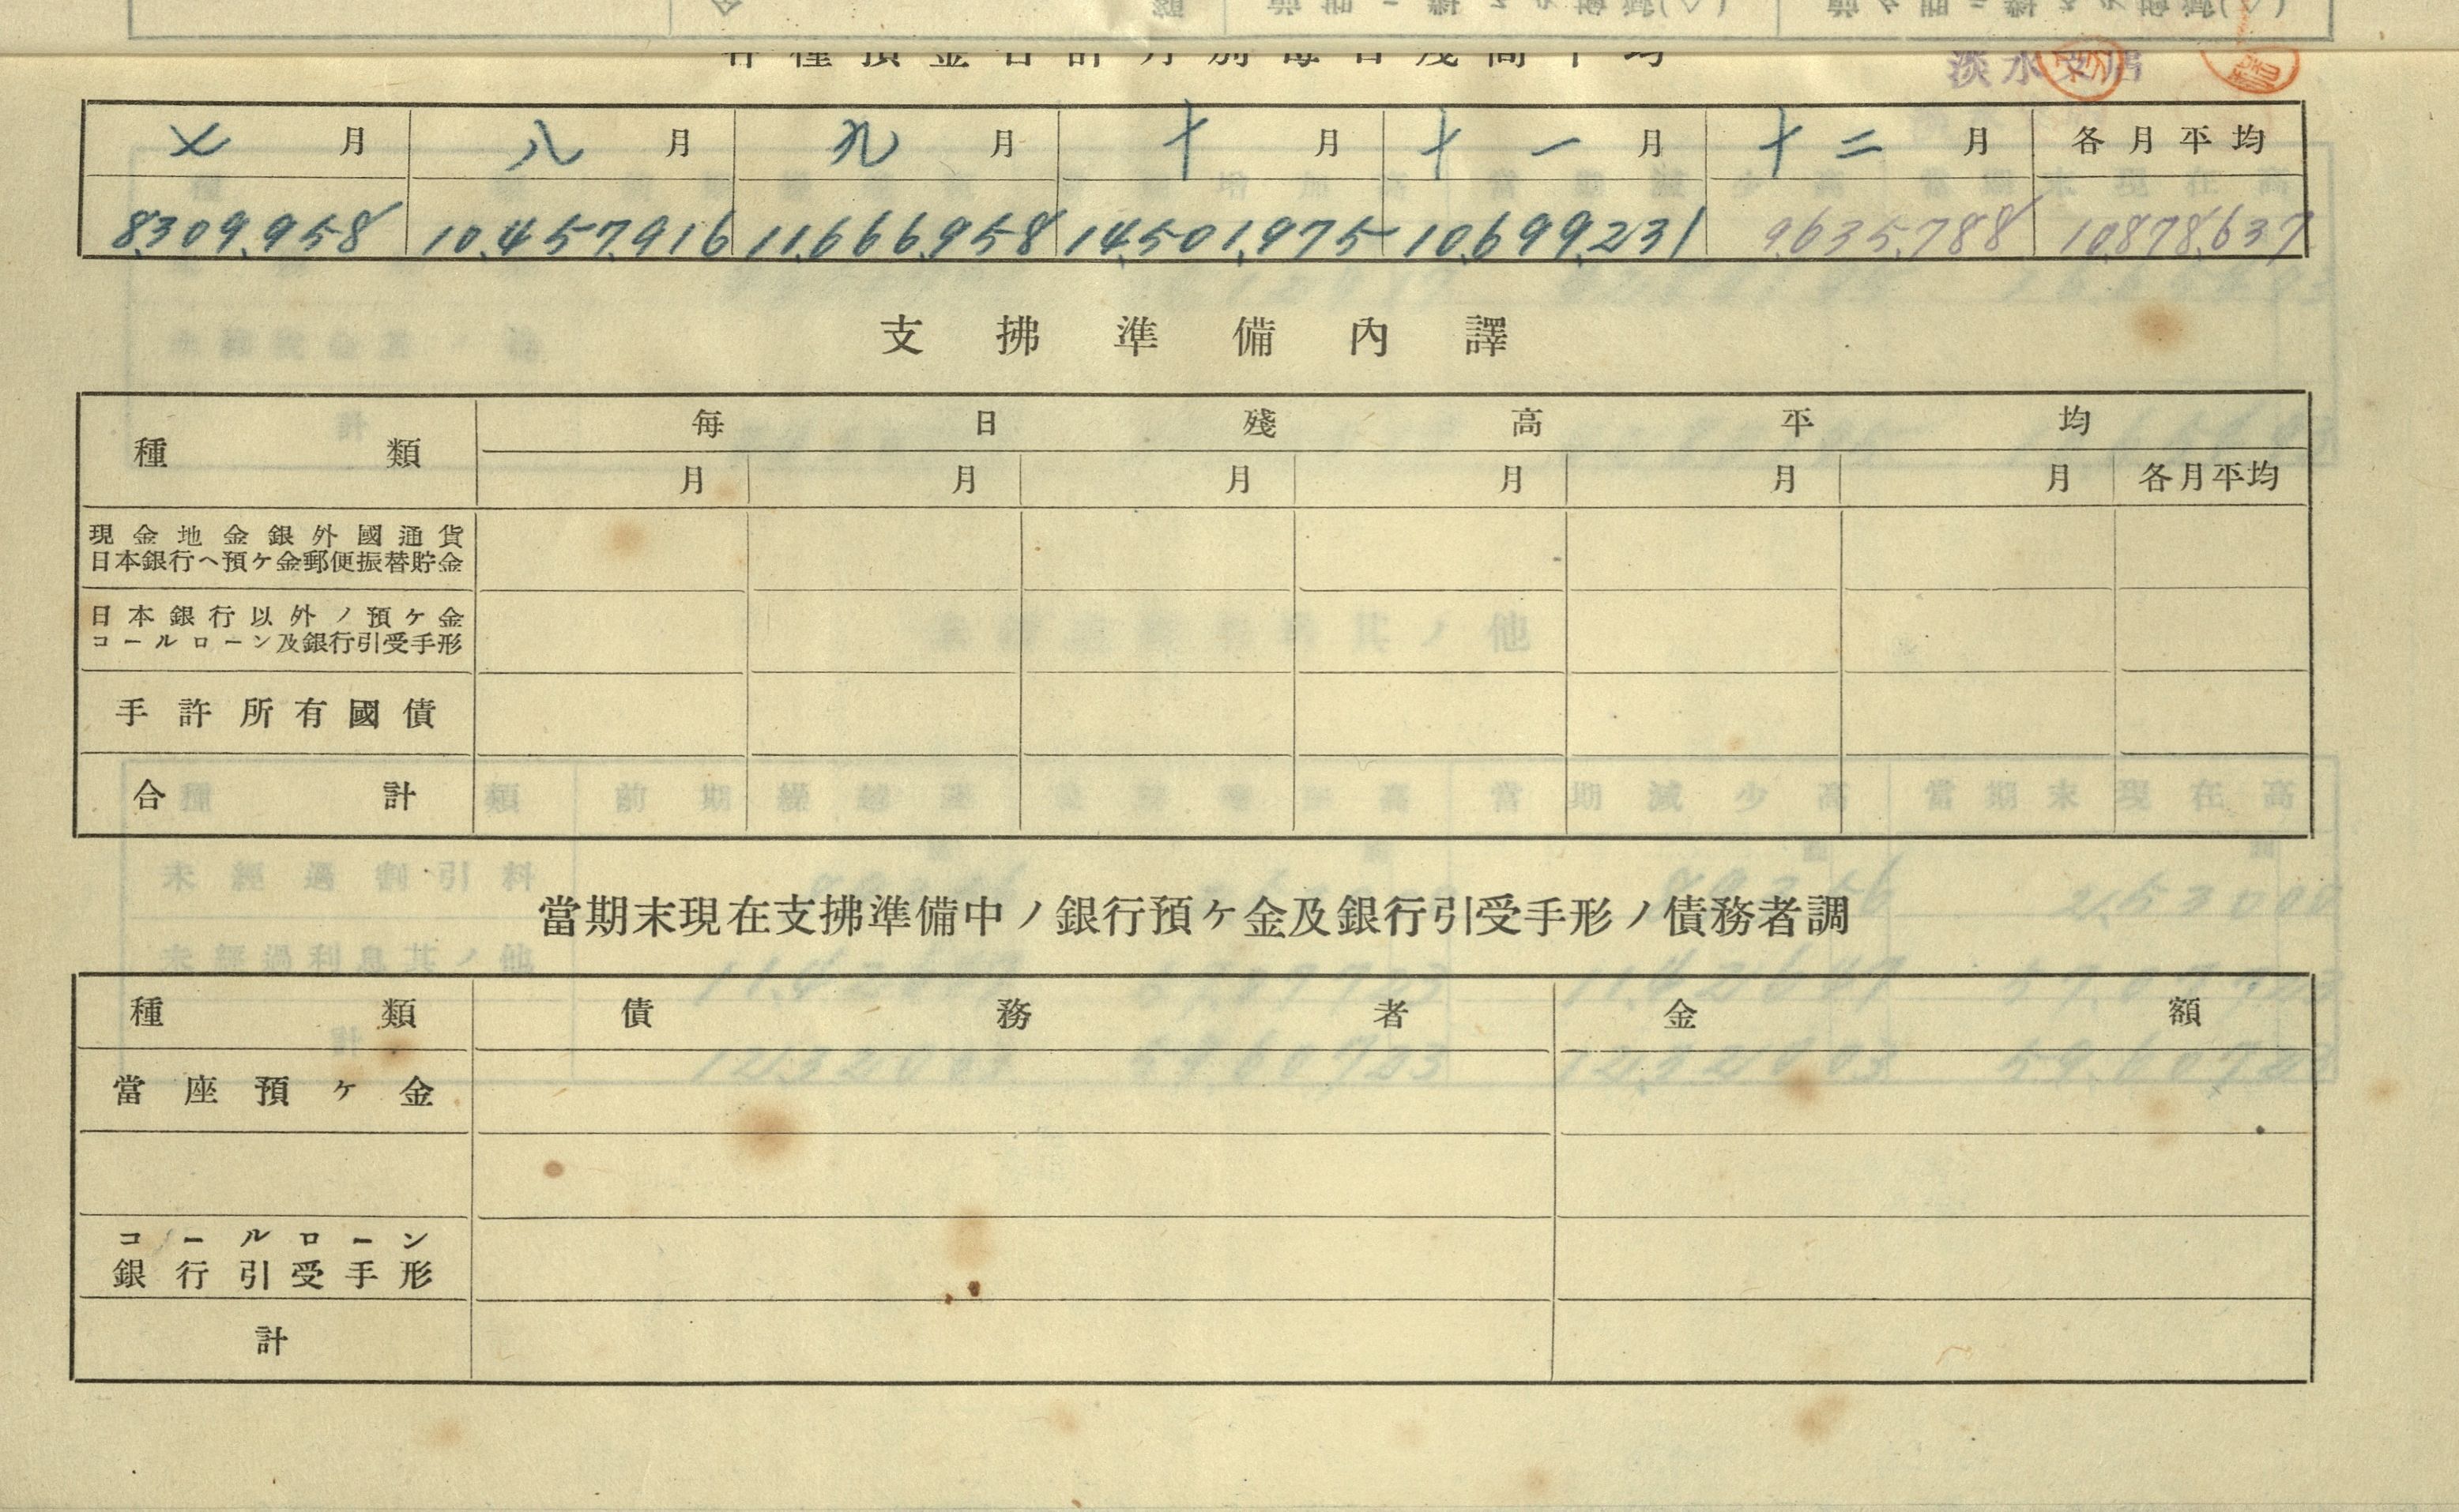 各種預金合計月別每日殘高平均
淡水支店
七月 八月 九月 十月 十一月 十二月 各月平均
8,309,958 10,457,916 11,666,958 14,501,975 10,699,231 9,635,788 10,878,637
支拂準備內譯
種類 每日殘高平均
月 月 月 月 月 月 各月平均
現金地金銀外國通貨
日本銀行ヘ預ケ金郵便振替貯金
日本銀行以外ノ預ケ金
コールローン及銀行引受手形
手許所有國債
合計
當期末現在支拂準備中ノ銀行預ケ金及銀行引受手形ノ債務者調
種類 債務者 金額
當座預ケ金
コールローン
銀行引受手形
計